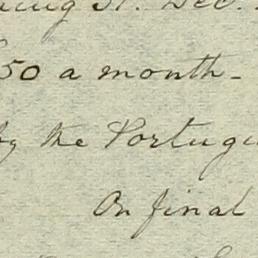 31. Dec.
50 a month -
by the Portugu
On final